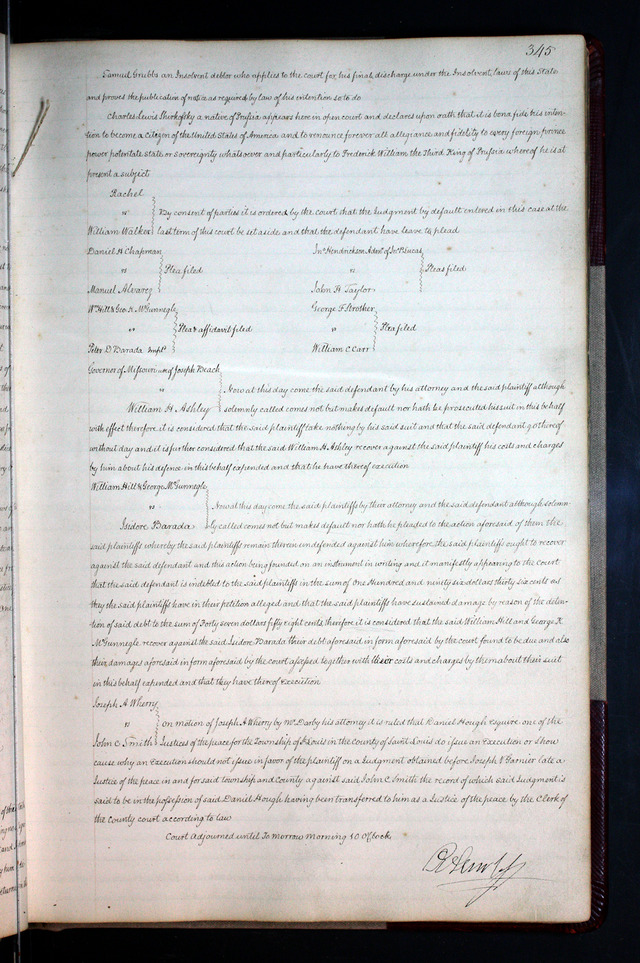 345
Samuel Grubbs an Insolvent debtor who applies to the court for his final discharge under the Insolvent laws of this State
and proves the publication of notice as required by law of his intention so to do
Charles Lewis appears here in open court and declares upon oath that it is bona fide his inten-
tion to become a Citizen of the United States of America and to renounce forever all allegiance and fidelity to every foreign prince
power potentate state or sovereignty whatsoever and particularly to Frederick William the Third King of Prussia whereof he is at
present a subject
Rachel
vs
By consent of parties it is ordered by the court that the Judgment by default entered in this case at the
William Walker last term of this court be set aside and that the defendant have leave to plead
Daniel H Chapman
vs Plea filed
Manuel Alvarez
Jno Hendrickson Admr of Jno B Lucas
vs Pleas filed
John H Taylor
Wm Hill & Geo. K. McGunnegle
vs Plea & affidavit filed
Peter D Barada Impld
George F Strother
vs Plea filed
William C Carr
Governor of Missouri use of Joseph Beach
vs Now at this day come the said defendant by his attorney and the said plaintiff although
William H Ashley solemnly called comes not but makes default nor hath he prosecuted his suit in this behalf
with effect therefore it is considered that the said plaintiff take nothing by his said suit and that the said defendant go thereof
without day and it is further considered that the said William H. Ashley recover against the said plaintiff his costs and charges
by him about his defence in this behalf expended and that he have thereof execution
William Hill & George McGunnegle
vs Now at this day come the said plaintiffs by their attorney and the said defendant although solemn-
Isidore Barada ly called comes not but makes default nor hath he pleaded to the action aforesaid of them the
said plaintiffs whereby the said plaintiffs remain therein undefended against him wherefore the said plaintiffs ought to recover
against the said defendant and this action being founded on an instrument in writing and it manifestly appearing to the Court
that the said defendant is indebted to the said plaintiffs in the sum of One Hundred and ninety six dollars thirty six cents as
they the said plaintiffs have in their petition alleged and that the said plaintiffs have sustained damage by reason of the deten-
tion of said debt to the sum of Forty seven dollars fifty eight cents therefore it is considered that the said William Hill and George K
McGunnegle recover against the said Isidore Barada their debt aforesaid in form aforesaid by the court found to be due and also
their damages aforesaid in form aforesaid by the court assessed together with their costs and charges by them about their suit
in this behalf expended and that they have thereof Execution
Joseph A Wherry
vs on motion of Joseph A Wherry by Mr Darby his attorney it is ruled that Daniel Hough Esquire one of the
John C Smith Justices of the peace for the Township of St Louis in the County of Saint Louis do issue an Execution or show
cause why an Execution should not issue in favor of the plaintiff on a Judgment obtained before Joseph V Garnier late a
Justice of the peace in and for said township and County against said John C. Smith the record of which said Judgment is
said to be in the possession of said Daniel Hough having been transferred to him as a Justice of the peace by the Clerk of
the County court according to law
Court Adjourned until To morrow Morning 10 O'Clock